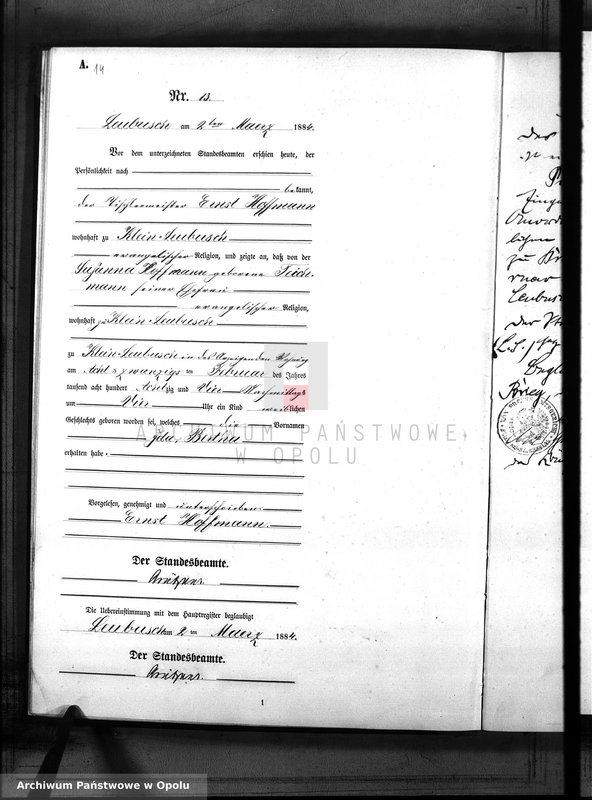 A.
14
Nr. 13.
Leubusch am 2ten Maerz 1884.
Vor dem unterzeichneten Standesbeamten erschien heute, der
Persönlichkeit nach
bekannt,
der Tischlermeister Ernst Hoffmann
wohnhaft zu Klein-Leubusch
evangelischer Religion, und zeigte an, daß von der
Susanna Hoffmann geborene Teich-
mann seiner Ehefrau
evangelischer Religion,
wohnhaft zu Klein-Leubusch
zu Klein-Leubusch in des Anzeigenden Wohnung
am Acht u. zwanzigsten Februar des Jahres
tausend acht hundert Achtzig und Vier Nachmittags
um Vier Uhr ein Kind weiblichen
Geschlechts geboren worden sei, welches die Vornamen
Ida, Bertha
erhalten habe.
Vorgelesen, genehmigt und unterschrieben
Ernst Hoffmann.
Der Standesbeamte.
Die Uebereinstimmung mit dem Hauptregister beglaubigt
Leubusch am 2ten Maerz 1884.
Der Standesbeamte.
1
ARCHIWUM PAŃSTWOWE
W OPOLU
Archiwum Państwowe w Opolu